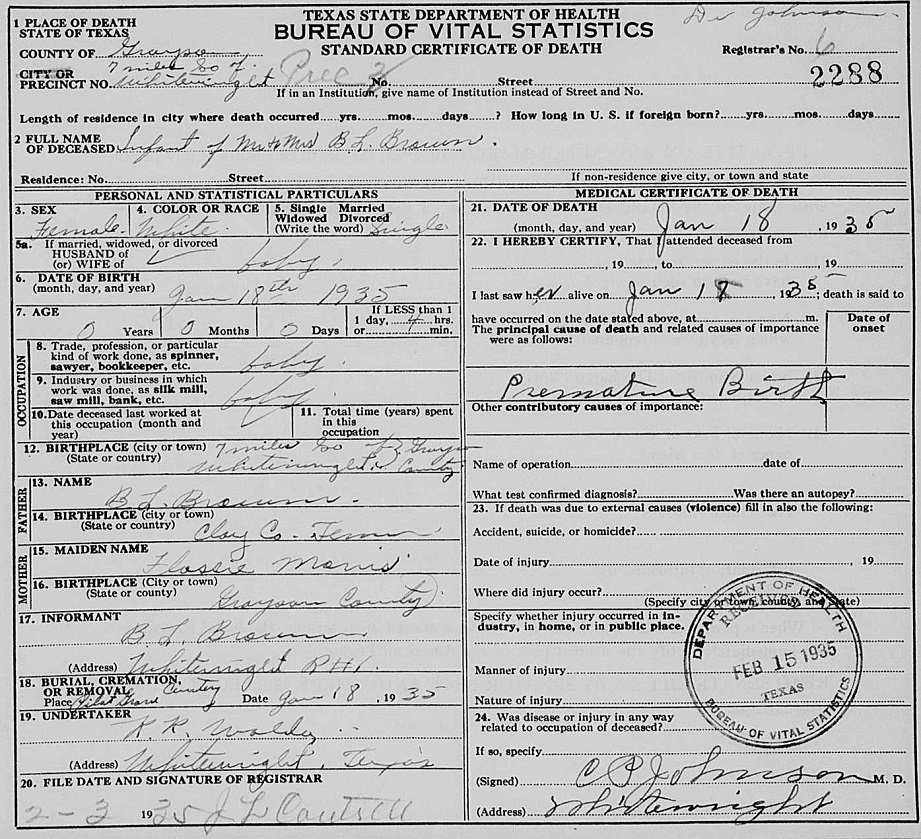 TEXAS STATE DEPARTMENT OF HEALTH
BUREAU OF VITAL STATISTICS
STANDARD CERTIFICATE OF DEATH
Dr Johnson
1 PLACE OF DEATH
STATE OF TEXAS
COUNTY OF Grayson
Registrar's No. 6
7 miles So of
CITY OR
PRECINCT NO. Whitewright Prec 3 No. Street
2288
If in an Institution, give name of Institution instead of Street and No.
Length of residence in city where death occurred yrs. mos. days? How long in U. S. if foreign born? yrs. mos. days
2 FULL NAME
OF DECEASED Infant of Mr & Mrs B. L. Brown.
Residence: No. Street
If non-residence give city, or town and state
PERSONAL AND STATISTICAL PARTICULARS
3. SEX
Female
4. COLOR OR RACE
White
5. Single Married
Widowed Divorced
(Write the word) Single
5a. If married, widowed, or divorced
HUSBAND of
(or) WIFE of baby
6. DATE OF BIRTH
(month, day, and year) Jan 18th 1935
7. AGE
0 Years 0 Months 0 Days
If LESS than 1
1 day, 4 hrs.
or min.
OCCUPATION
8. Trade, profession, or particular
kind of work done, as spinner,
sawyer, bookkeeper, etc. baby
9. Industry or business in which
work was done, as silk mill,
saw mill, bank, etc. baby
10. Date deceased last worked at
this occupation (month and
year)
11. Total time (years) spent
in this
occupation
12. BIRTHPLACE (city or town) 7 miles So of Grayson
(State or country) Whitewright County
FATHER
13. NAME
B. L. Brown.
14. BIRTHPLACE (city or town)
(State or country) Clay Co. Tenn
MOTHER
15. MAIDEN NAME
Flossie Morris
16. BIRTHPLACE (City or town)
(State or country) Grayson County
17. INFORMANT
B. L. Brown
(Address) Whitewright
18. BURIAL, CREMATION,
OR REMOVAL
Place Pilot Grove Date Jan 18, 1935
19. UNDERTAKER
(Address) Whitewright, Texas
20. FILE DATE AND SIGNATURE OF REGISTRAR
2-3 1935
MEDICAL CERTIFICATE OF DEATH
21. DATE OF DEATH
(month, day, and year) Jan 18, 1935
22. I HEREBY CERTIFY, That I attended deceased from
, 19, to , 19
I last saw her alive on Jan 18, 1935; death is said to
have occurred on the date stated above, at m.
The principal cause of death and related causes of importance
were as follows:
Date of
onset
Premature Birth
Other contributory causes of importance:
Name of operation date of
What test confirmed diagnosis? Was there an autopsy?
23. If death was due to external causes (violence) fill in also the following:
Accident, suicide, or homicide?
Date of injury , 19
Where did injury occur?
(Specify city or town, county, and state)
Specify whether injury occurred in in-
dustry, in home, or in public place.
Manner of injury
Nature of injury
24. Was disease or injury in any way
related to occupation of deceased?
If so, specify
(Signed) C P Johnson M. D.
(Address) Whitewright
DEPARTMENT OF HEALTH
RECEIVED
FEB 15 1935
TEXAS
BUREAU OF VITAL STATISTICS